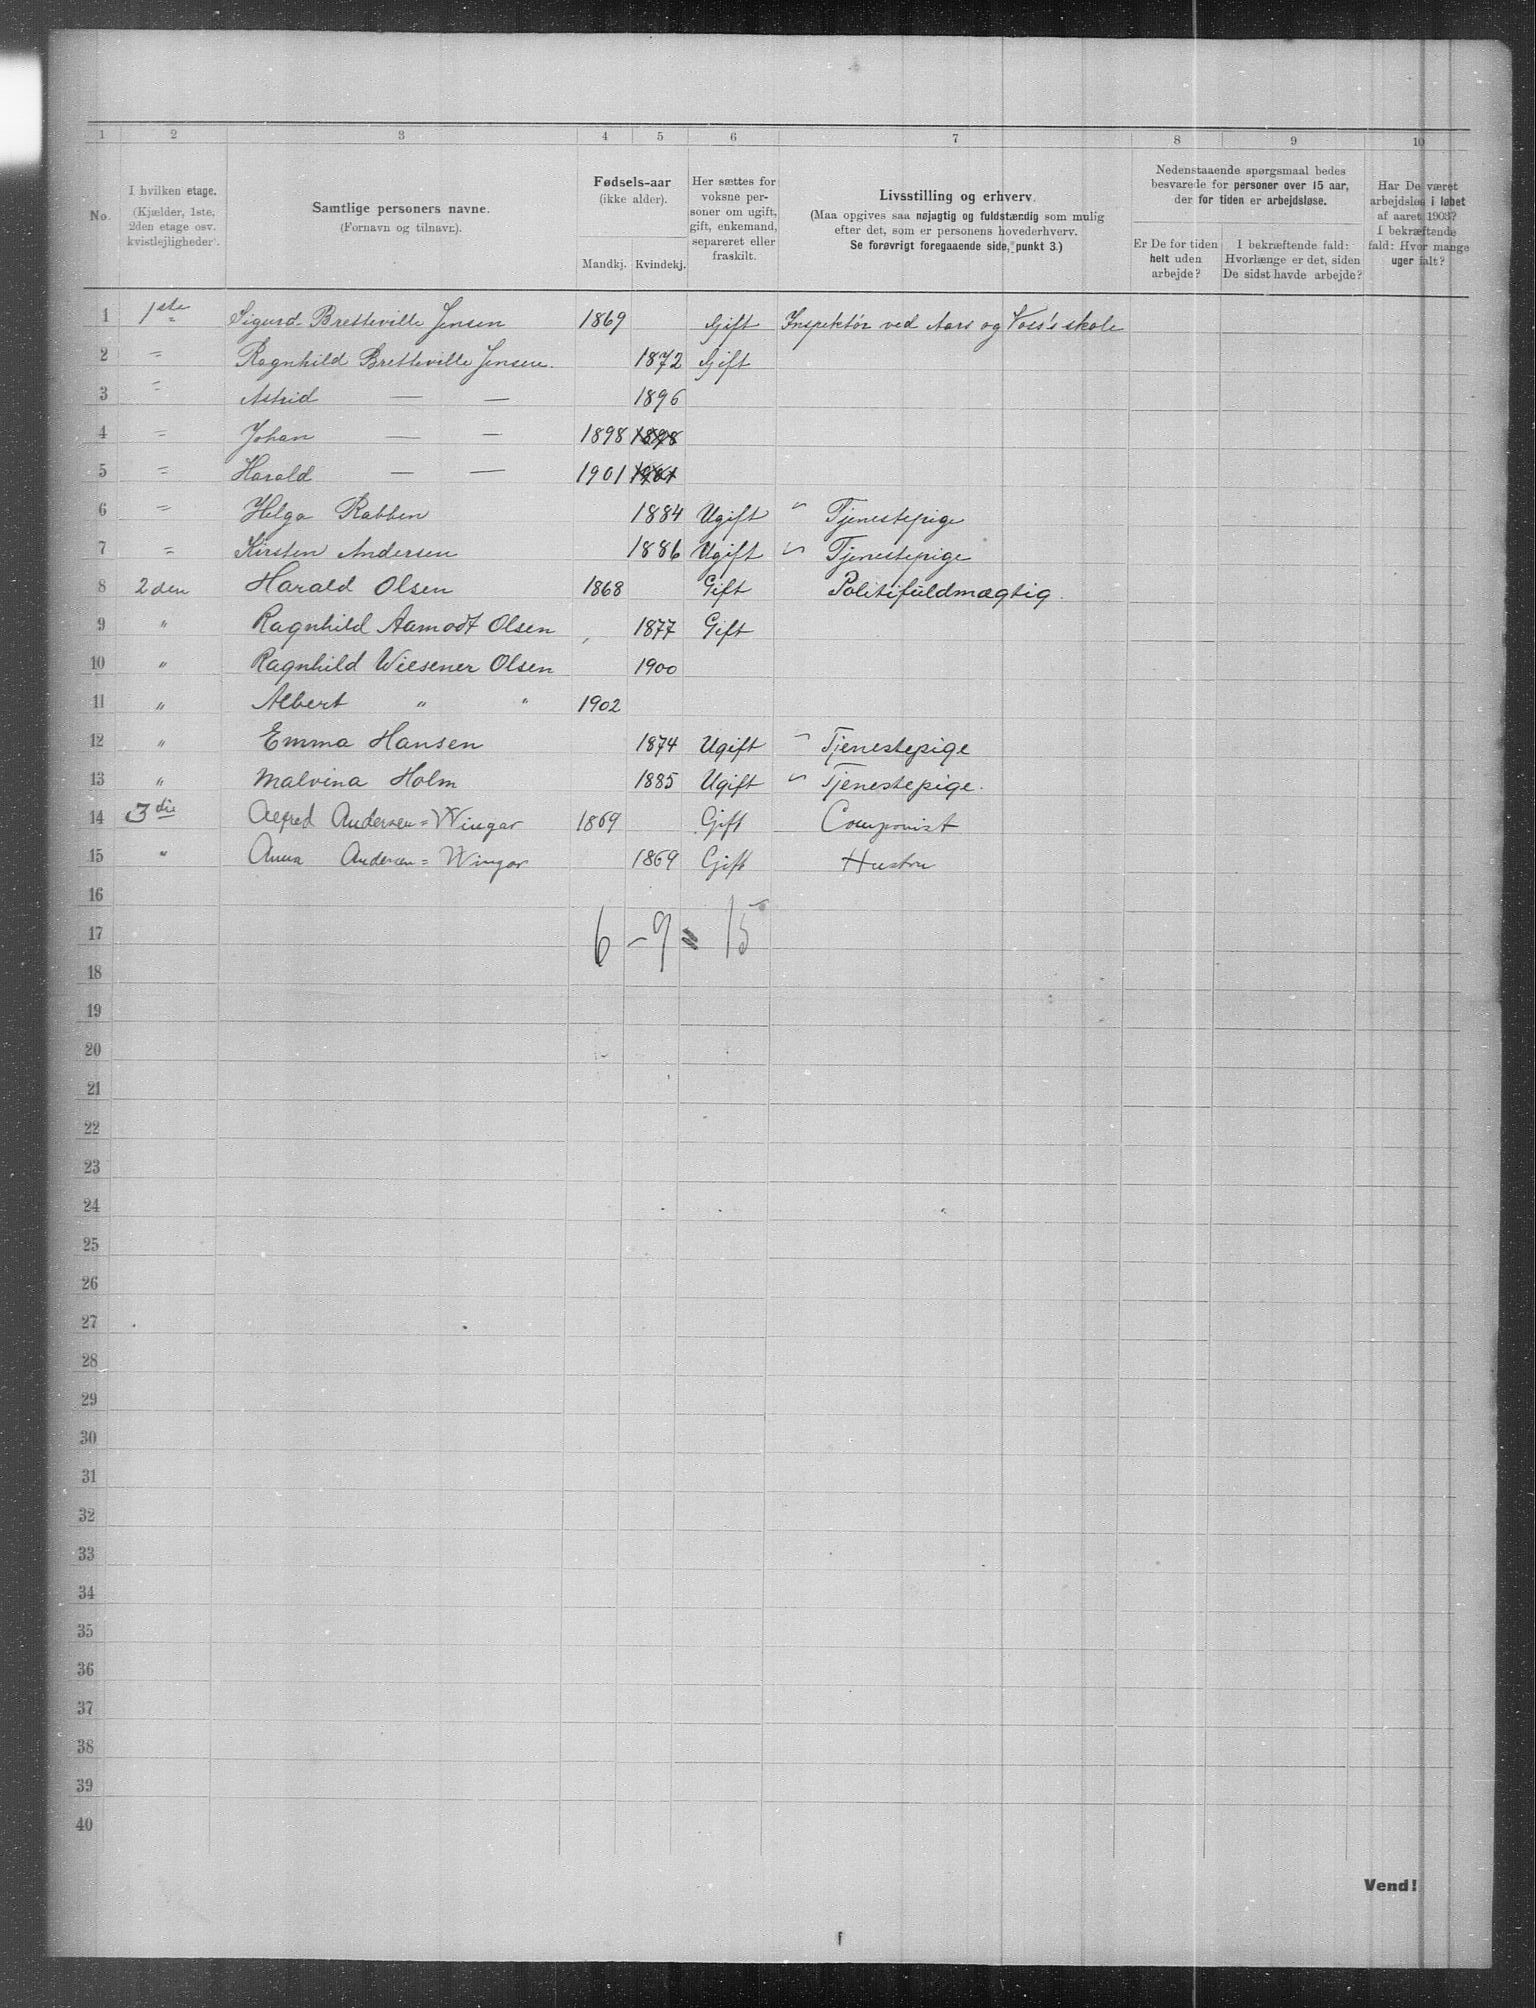 1 2 3 4 5 6 7 8 9 10
No.
I hvilken etage.
(Kjælder, 1ste,
2den etage osv.
kvistlejligheder).
Samtlige personers navne.
(Fornavn og tilnavn).
Fødsels-aar
(ikke alder).
Mandkj. Kvindekj.
Her sættes for
voksne per-
soner om ugift,
gift, enkemand,
separeret eller
fraskilt.
Livsstilling og erhverv.
(Maa opgives saa nøjagtig og fuldstændig som mulig
efter det, som er personens hovederhverv.
Se forøvrigt foregaaende side, punkt 3.)
Nedenstaaende spørgsmaal bedes
besvarede for personer over 15 aar,
der for tiden er arbejdsløse.
Er De for tiden
helt uden
arbejde?
I bekræftende fald:
Hvorlænge er det, siden
De sidst havde arbejde?
Har De været
arbejdsløs i løbet
af aaret 1903?
I bekræftende
fald: Hvor mange
uger ialt?
1 1ste Sigurd Bretteville Jensen 1869 Gift Inspektør ved Aars og Voss's skole
2 " Ragnhild Bretteville Jensen. 1872 Gift
3 " Astrid — — 1896
4 " Johan — — 1898 1898
5 " Harald — — 1901 1901
6 " Helga Rabben 1884 Ugift " Tjenestepige
7 " Kirsten Andersen 1886 Ugift " Tjenestepige
8 2den Harald Olsen 1868 Gift Politifuldmægtig.
9 " Ragnhild Aamodt Olsen 1877 Gift
10 " Ragnhild Wiesener Olsen 1900
11 " Albert " " 1902
12 " Emma Hansen 1874 Ugift " Tjenestepige
13 " Malvina Holm 1885 Ugift " Tjenestepige.
14 3die Alfred Andersen=Wingar 1869 Gift Componist
15 " Anna Andersen=Wingar 1869 Gift Hustru
16
17 6 – 9 = 15
18
19
20
21
22
23
24
25
26
27
28
29
30
31
32
33
34
35
36
37
38
39
40
Vend!